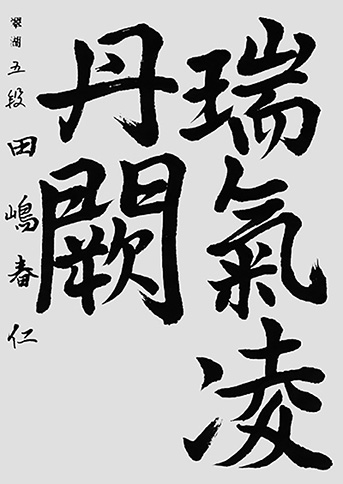 瑞氣凌
丹闕
五段 田嶋春仁